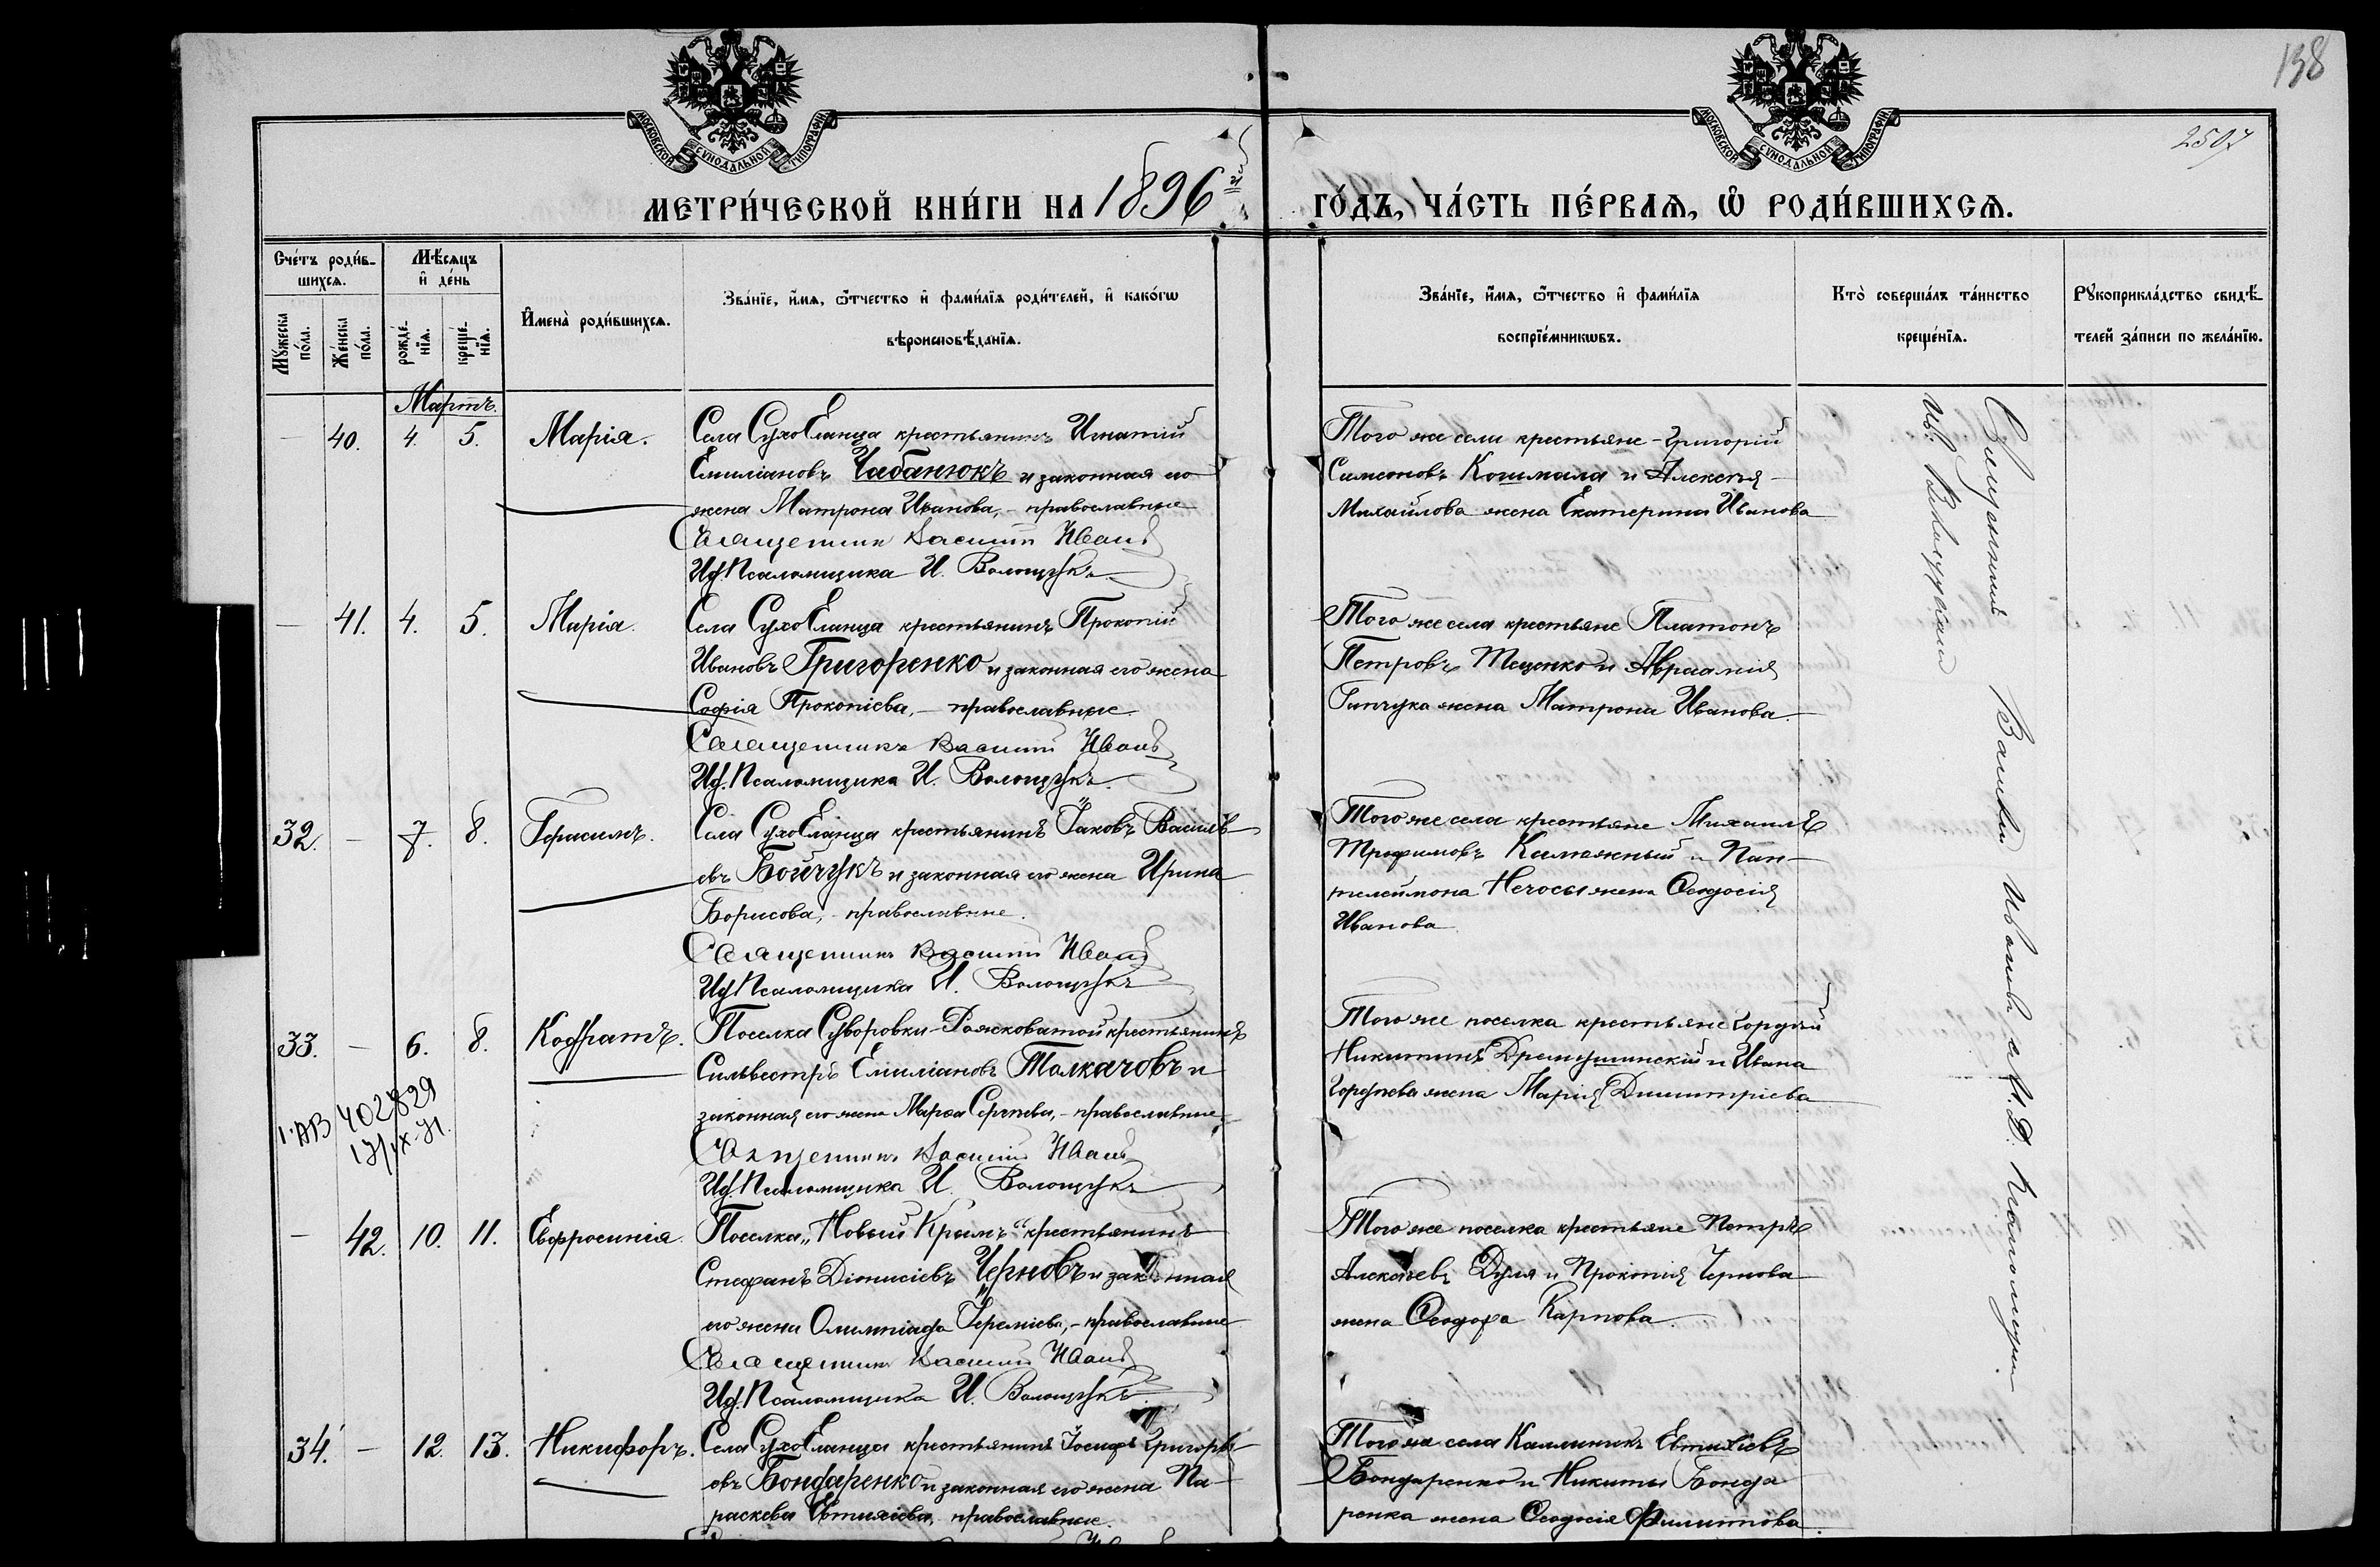 138
2507
МОСКОВСКОЙ СѴНОДАЛЬНОЙ ТИПОГРАФІИ
МОСКОВСКОЙ СѴНОДАЛЬНОЙ ТИПОГРАФІИ
МЕТРИ́ЧЕСКОЙ КНИ́ГИ НА 1896й ГО́ДЪ, ЧА́СТЬ ПЕ́РВАѦ, Ѡ҆ РОДИ́ВШИХСѦ.
Сче́тъ роди́в-
шихсѧ.
Мꙋ́жеска по́ла.
Же́нска по́ла.
Мѣ́сѧцъ
и҆ де́нь
рожде́-
нїѧ.
креще́-
нїѧ.
И҆мена̀ роди́вшихсѧ.
Зва́нїе, и҆́мѧ, ѻ҆́тчество и҆ фами́лїѧ роди́телей, и҆ како́гѡ
вѣроисповѣ́данїѧ.
Зва́нїе, и҆́мѧ, ѻ҆́тчество и҆ фами́лїѧ
воспрїе́мникѡвъ.
Кто̀ соверша́лъ та́инство
креще́нїѧ.
Рꙋкоприкла́дство свидѣ́-
телей за́писи по жела́нїю.
Мартъ.
— 40. 4. 5. Марія.
Села СухоЕланца крестьянинъ Игнатій
Емиліановъ Чабанюкъ и законная его
жена Матрона Иванова, - православные
Священникъ Василій
Ид. Псаломщика И. Волощукъ
Того же села крестьяне - Григорій
Симеоновъ Кошмала и Алексѣя
Михайлова жена Екатерина Иванова
— 41. 4. 5. Марія.
Села СухоЕланца крестьянинъ Прокопій
Ивановъ Григоренко и законная его жена
Софія Прокопіева, - православные.
Священникъ Василій
Ид. Псаломщика И. Волощукъ.
Того же села крестьяне Платонъ
Петровъ Тещенко и Авраамія
жена Матрона Иванова
32. — 7. 8. Герасимъ.
Села СухоЕланца крестьянинъ Іаковъ Василь-
евъ Бойчукъ и законная его жена Ирина
Борисова, - православные.
Священникъ Василій
Ид. Псаломщика И. Волощукъ
Того же села крестьяне Михаилъ
Трофимовъ и Пан-
телеймона Нечосы жена Ѳеодосія
Иванова
33. — 6. 8. Кодратъ.
Поселка Суворовки-Рожковатой крестьянинъ
Сильвестръ Емиліановъ Толкачовъ и
законная его жена Марѳа Сергѣева, - православные
Священникъ Василій
Ид. Псаломщика И. Волощукъ
Того же поселка крестьяне Гордѣй
Никитинъ и Ивана
Гордѣева жена Марія Димитріева
I·АВ 402829
17/IX-71.
— 42. 10. 11. Евфросинія.
Поселка „Новый Крымъ“ крестьянинъ
Стефанъ Діонисіевъ Черновъ и законная
его жена Олимпіада Іереміева, - православные
Священникъ Василій
Ид. Псаломщика И. Волощукъ
Того же поселка крестьяне Петръ
Алексѣевъ Дуля и Прокопія Чернова
жена Ѳеодора Карпова
34. — 12. 13. Никифоръ.
Села СухоЕланца крестьянинъ Іосифъ Григорь-
евъ Бондаренко и законная его жена Па-
раскева Евтихіева, православные.
Того же села Каллиникъ Евтихіевъ
Бондаренко и Никиты Бонда
ренка жена Ѳеодосія Филиппова.
Священникъ Василій